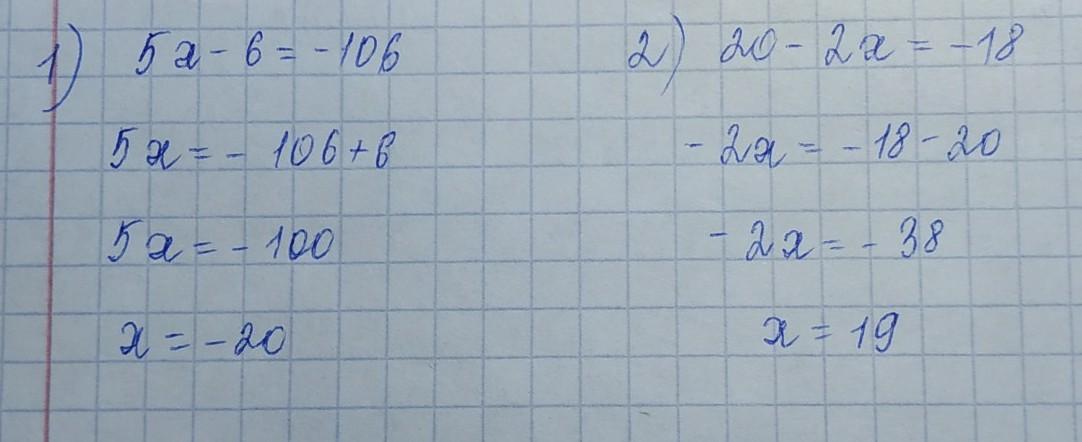 1) 5x - 6 = -106
5x = - 106 + 6
5x = - 100
x = -20
2) 20 - 2x = -18
- 2x = -18 - 20
- 2x = - 38
x = 19